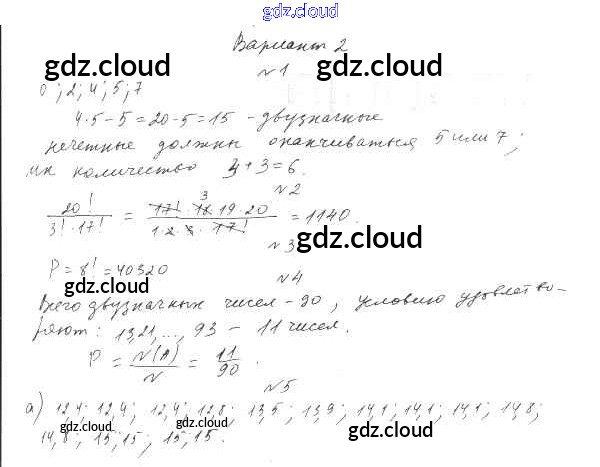 gdz.cloud
Вариант 2
gdz.cloud gdz.cloud
№1
0; 2; 4; 5; 7
4·5-5=20-5=15 - двузначные
нечетные должны оканчиваться 5 или 7;
их количество 3+3=6.
№2
20! / 3!·17! = 17!·18·19·20 / 1·2·3·17! = 1140.
3
№3
gdz.cloud
P=8!=40320
gdz.cloud
№4
Всего двузначных чисел - 90, условию удовлетво-
ряют: 13,21,..., 93 - 11 чисел.
P = N(A)/N = 11/90.
№5
а) 12,4; 12,4; 12,4; 12,8; 13,5; 13,9; 14,1; 14,1; 14,1; 14,8;
14,8; 15; 15; 15; 15.
gdz.cloud gdz.cloud gdz.cloud